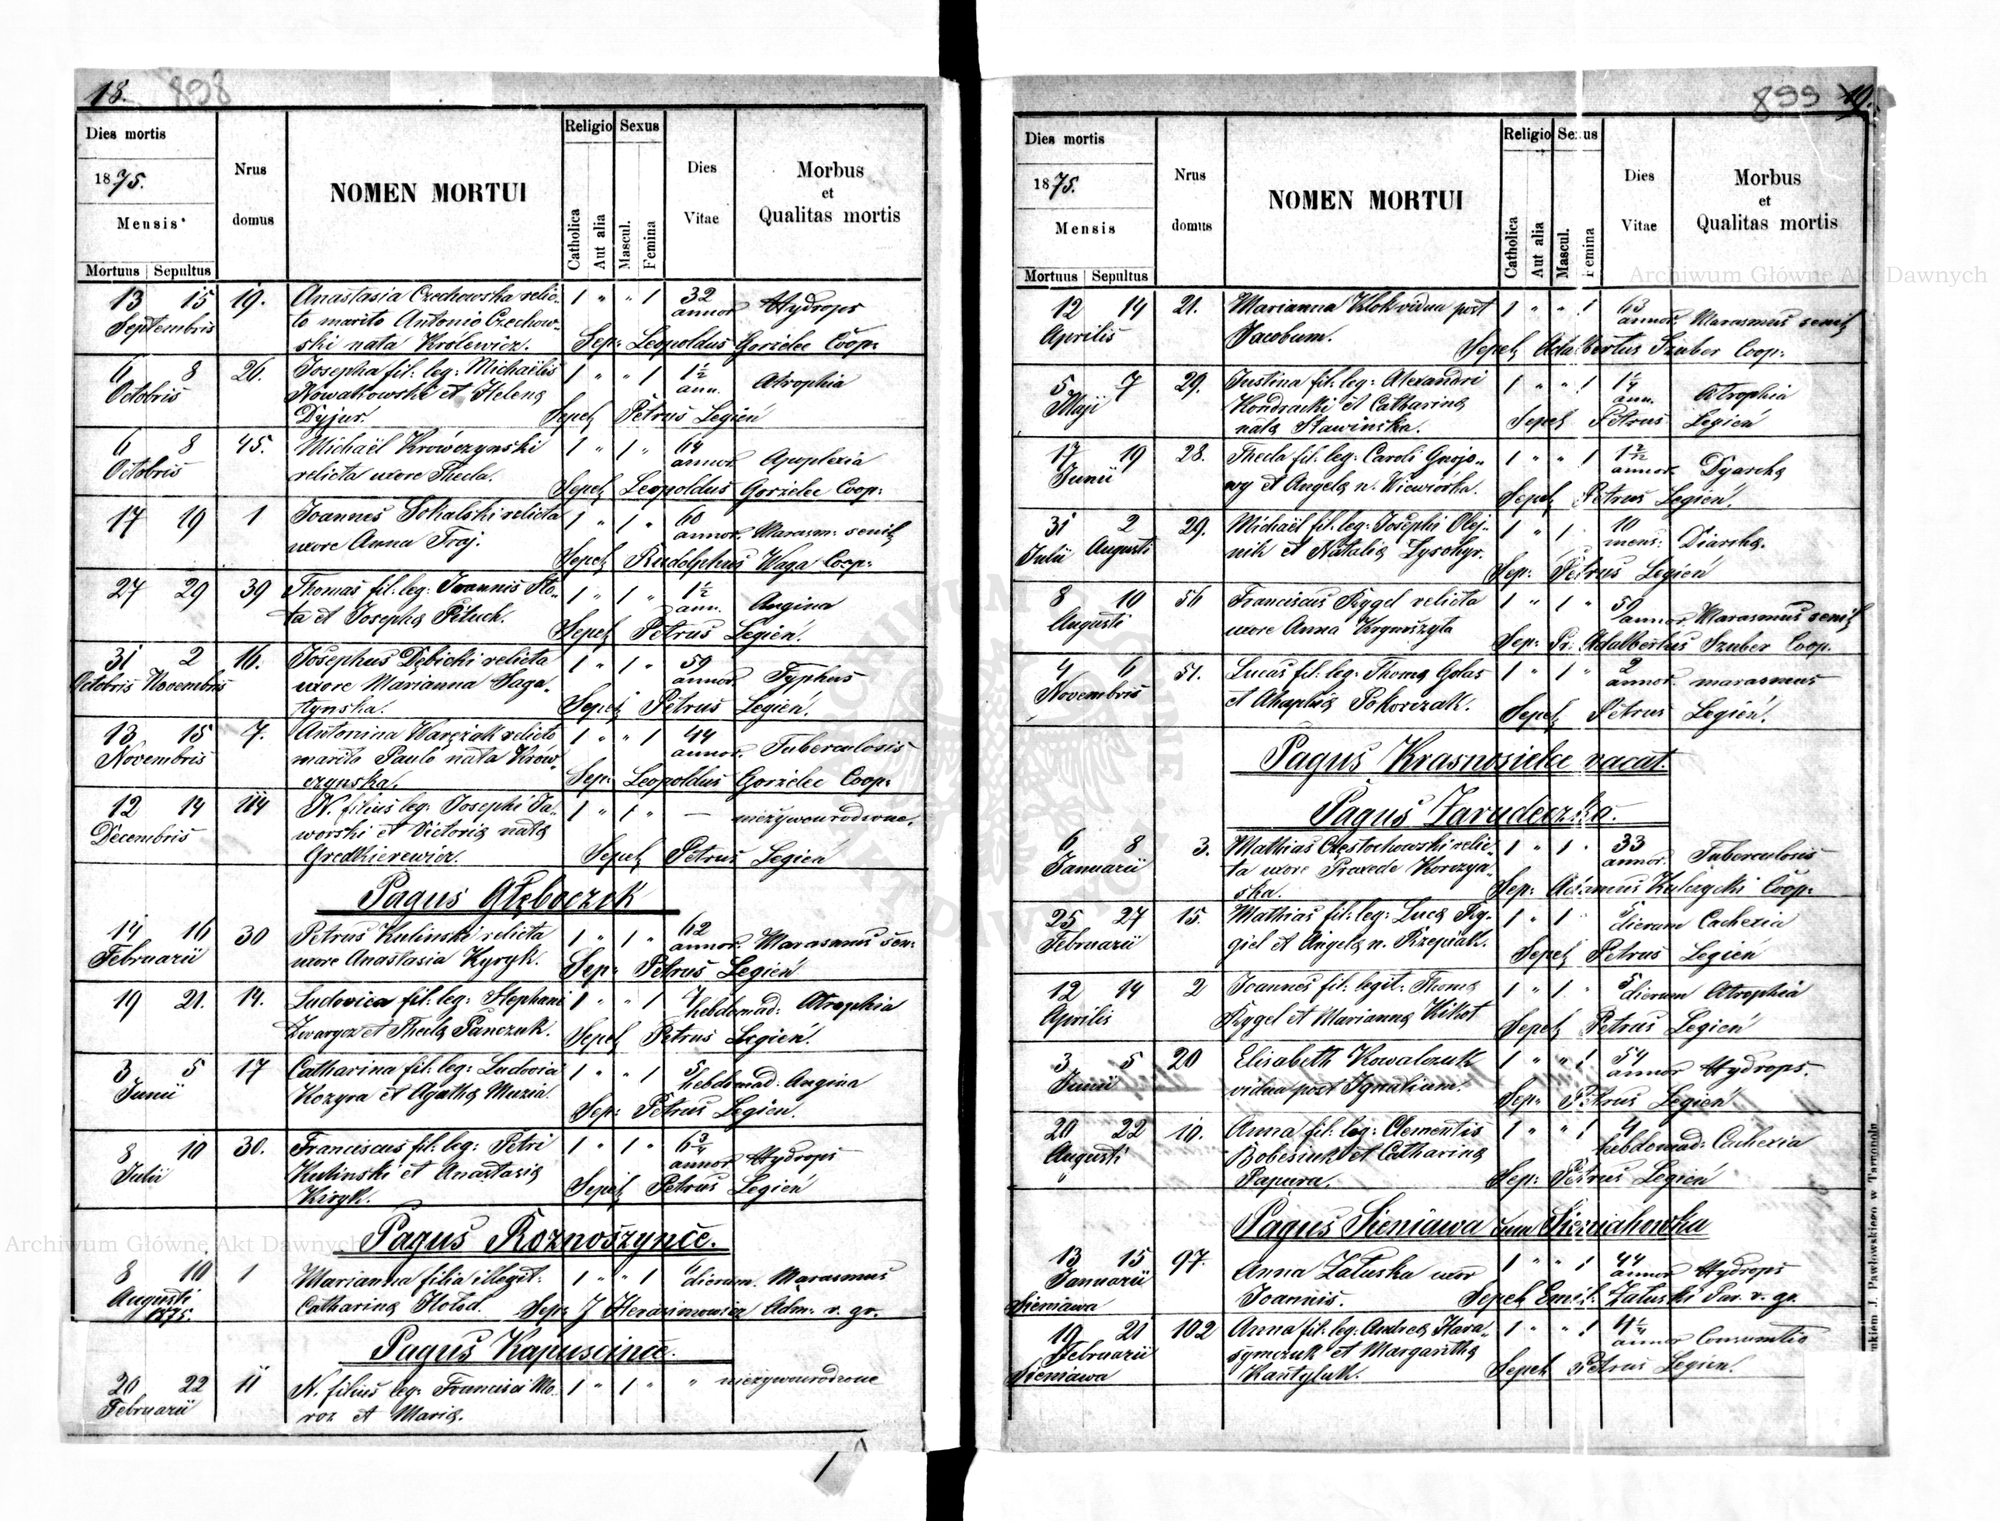 18. 898
Dies mortis
1875.
Mensis
Mortuus Sepultus
Nrus domus
NOMEN MORTUI
Religio
Catholica
Aut alia
Sexus
Mascul.
Femina
Dies Vitae
Morbus et Qualitas mortis
13 15 19. Anastasia Czechowska relic- 1 " " 1 32 Hydrops
Septembris to marito Antonio Czechow- annor.
ski nata Królewicz. Sep: Leopoldus Gorzelec Coop:
6 8 26. Josepha fil: leg: Michaëlis 1 " " 1 1½ Atrophia
Octobris Nowakowski et Helena ann.
Dyjur. Sepel. Petrus Legień
6 8 45. Michaël Krówczynski 1 " 1 " 64 Apoplexia
Octobris relicta uxore Thecla. annor.
Sepel. Leopoldus Gorzelec Coop:
17 19 1 Joannes Sokalski relicta 1 " 1 " 60 Marasm: senil.
uxore Anna Traj. annor.
Sepel. Rudolphus Waga Coop:
27 29 39 Thomas fil: leg: Joannis Sło- 1 " 1 " 1½ Angina
ta et Josepha Piluch. ann.
Sepel. Petrus Legień.
31 2 16. Josephus Dębicki relicta 1 " 1 " 50 Typhus
Octobris Novembris uxore Marianna Saga- annor.
tynska. Sepel. Petrus Legień.
13 15 7. Antonina Karczak relicto 1 " " 1 44 Tuberculosis
Novembris marito Paulo nata Krów- annor.
czynska. Sep: Leopoldus Gorzelec Coop:
12 14 114 N. filius leg: Josephi Ja- 1 " 1 " — nieżywourodzone.
Decembris worski et Victoria nata
Grodkierewicz. Sepel. Petrus Legień
Pagus Głęboczek
14 16 30 Petrus Kulinski relicta 1 " 1 " 62 Marasmus sen:
Februarii uxore Anastasia Kyryk. annor.
Sep: Petrus Legień
19 21. 14. Ludovica fil: leg: Stephani 1 " " 1 7 hebdomad: Atrophia
et Thecla Panczuk.
Sepel. Petrus Legień.
3 5 17 Catharina fil: leg: Ludovici 1 " " 1 5 hebdomad: Angina
Junii Kozyra et Agatha Muzia.
Sep: Petrus Legień.
8 10 30. Franciscus fil: leg: Petri 1 " 1 " 6¾ Hydrops
Julii Kulinski et Anastasia annor
Kiryk. Sepel. Petrus Legień
Pagus Roznoszynce.
8 10 1 Marianna filia illegit: 1 " " 1 dierum. Marasmus
Augusti Catharina Hołod. Sep: J Herasimowicz Adm. r. gr.
1875.
Pagus Kapuscince.
20 22 11 N. filius leg: Francisci Mo- 1 " 1 " " nieżywourodzone
Februarii roz et Maria.
899 19.
Dies mortis
1875.
Mensis
Mortuus Sepultus
Nrus domus
NOMEN MORTUI
Religio
Catholica
Aut alia
Sexus
Mascul.
Femina
Dies Vitae
Morbus et Qualitas mortis
12 14 21. Marianna Kłok vidua post 1 " " 1 63 annor. Marasmus senil.
Aprilis Jacobum. Sepel. Adalbertus Szuber Coop:
5 7 29. Justina fil: leg: Alexandri 1 " " 1 1¼ Atrophia
Maji Kondracki et Catharina ann.
nata Sławinska. Sepel. Petrus Legień
17 19 28. Thecla fil: leg: Caroli Gnojo- 1 " " 1 annor. Dyarrha
Junii wy et Angela n. Wiewiórka. Sepel. Petrus Legień.
31 2 29. Michaël fil: leg: Josephi Olej- 1 " 1 " 10 Diarrha.
Julii Augusti nik et Natalia Łysohyr. mens:
Sep: Petrus Legień
8 10 56 Franciscus Rygel relicta 1 " 1 " 50 annor. Marasmus senil.
Augusti uxore Anna Krynoszyta Sep: Pr: Adalbertus Szuber Coop.
4 6 51. Lucas fil: leg: Thoma Golas 1 " 1 " 2 annor. marasmus
Novembris et Ahaphia Pokorczak. Sepel. Petrus Legień.
Pagus Krasnosielce vacat.
Pagus Zarudeczko.
6 8 3. Mathias Częstochowski relic- 1 " 1 " 33 annor. Tuberculosis
Januarii ta uxore Praxede Korczyn-
ska. Sep: Adamus Kulczycki Coop:
25 27 15. Mathias fil: leg: Luca Ry- 1 " 1 " 5 dierum Cachexia
Februarii giel et Angela n. Rzepiak. Sepel. Petrus Legień
12 14 2 Joannes fil: legit: Thoma 1 " 1 " 5 dierum Atrophia
Aprilis Rygel et Marianna Kikot Sepel. Petrus Legień
3 5 20 Elisabeth Kowalczuk 1 " " 1 54 annor Hydrops.
Junii vidua post Ignatium. Sep: Petrus Legień
20 22 10. Anna fil: leg: Clementis 1 " " 1 4 hebdomad: Cachexia
Augusti Bobesiuk et Catharina
" Papura. Sep: Petrus Legień
Pagus Sieniawa cum Sieniahowka
13 15 97. Anna Załuska uxor 1 " " 1 44 annor Hydrops
Januarii Joannis. Sepel. Emil: Załuski Par. r. gr.
Sieniawa
19 21 102 Anna fil: leg: Andrea Hara- 1 " " 1 4½ annor Consumtio
Februarii symczuk et Margaritha
Sieniawa Kastyluk. Sepel. Petrus Legień.
J. Pawłowskiego w Tarnopolu.
Archiwum Główne Akt Dawnych
Archiwum Główne Akt Dawnych